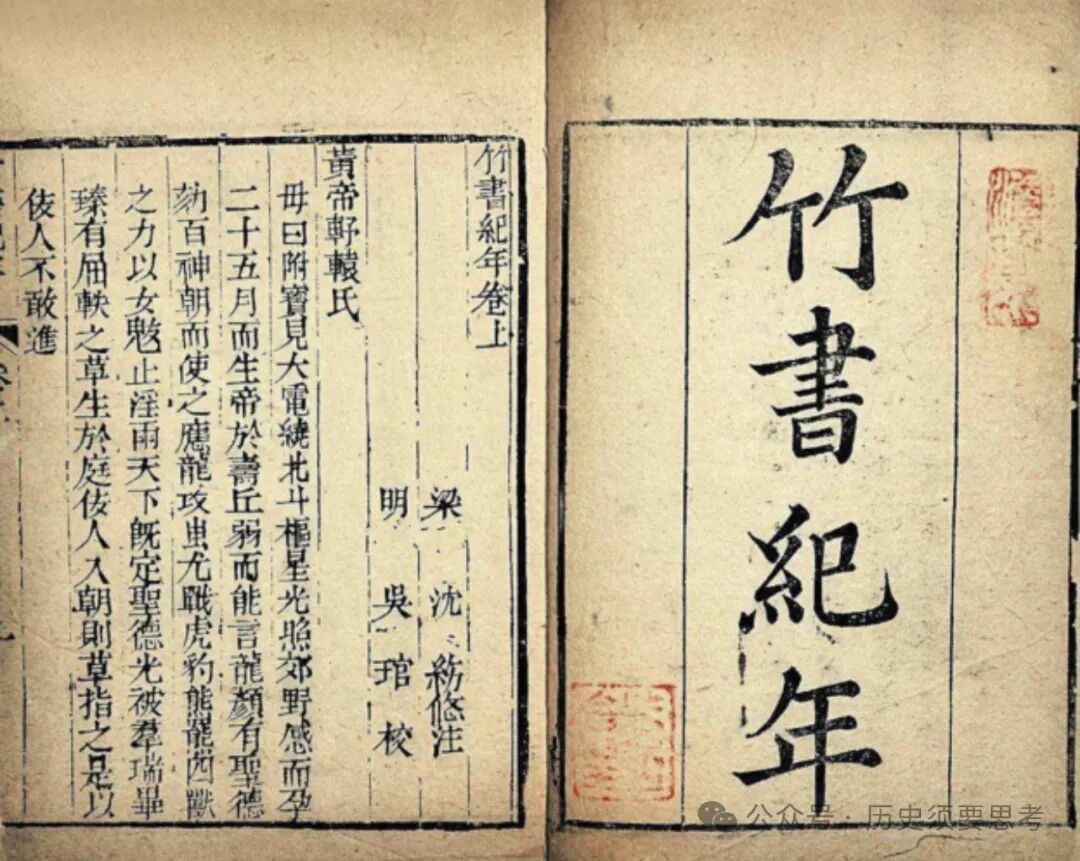 竹書紀年
竹書紀年卷上
梁 沈 注
明 吳 琯 校
黃帝軒轅氏
母曰附寶見大電繞北斗樞星光照郊野感而孕
二十五月而生帝於壽丘弱而能言龍顏有聖德
劾百神朝而使之應龍攻蚩尤戰虎豹熊羆四獸
之力以女魃止淫雨天下既定聖德光被羣瑞畢
臻有屈軼之草生於庭佞人入朝則草指之是以
佞人不敢進
公众号·历史须要思考